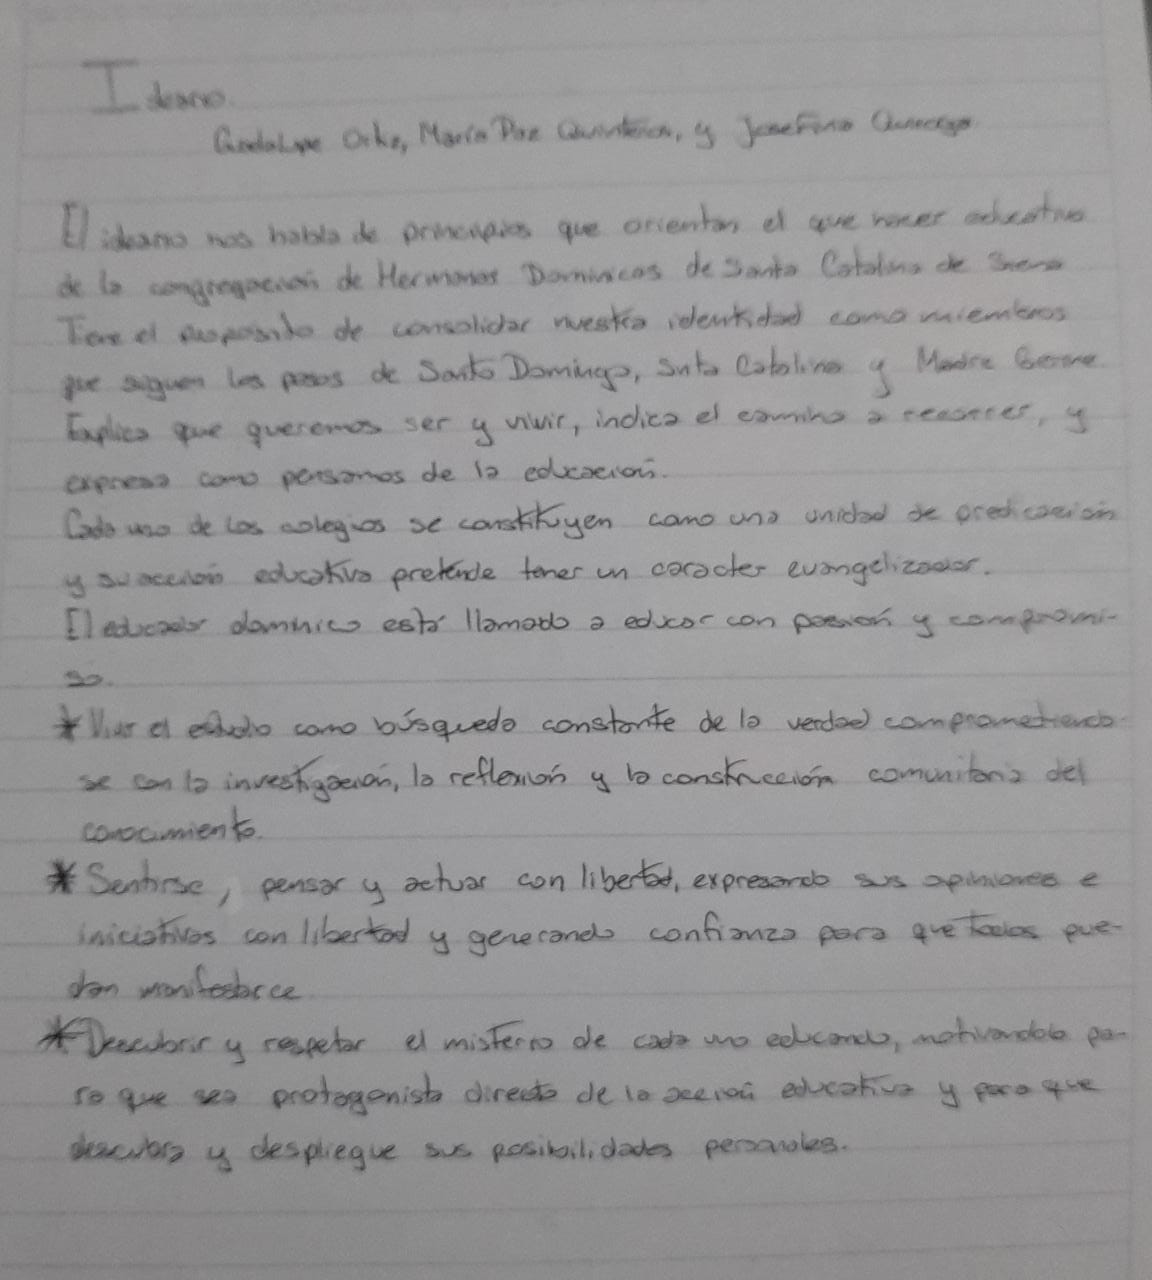 Ideario
Guadalupe María Paz y Josefina
El ideario nos habla de principios que orientan el que hacer educativo
de la congregación de Hermanas Dominicas de Santa Catalina de Siena
Tiene el proposito de consolidar nuestra identidad como miembros
que siguen los pasos de Santo Domingo, Snta Catalina y Madre
Explica que queremos ser y vivir, indica el camino a recorrer, y
expresa como pensamos de la educación.
Cada uno de los colegios se constituyen como una unidad de predicación
y su acción educativa pretende tener un caracter evangelizador.
El educador dominico está llamado a educar con pasión y compromi-
so.
* Vivir el estudio como búsqueda constante de la verdad comprometiendo
se con la investigación, la reflexión y la construcción comunitaria del
conocimiento.
* Sentirse, pensar y actuar con libertad, expresando sus opiniones e
iniciativas con libertad y generando confianza para que todos pue-
dan manifestarce
* Descubrir y respetar el misterio de cada uno educando, motivandolo pa-
ra que sea protagonista directa de la acción educativa y para que
descubra y despliegue sus posibilidades personales.